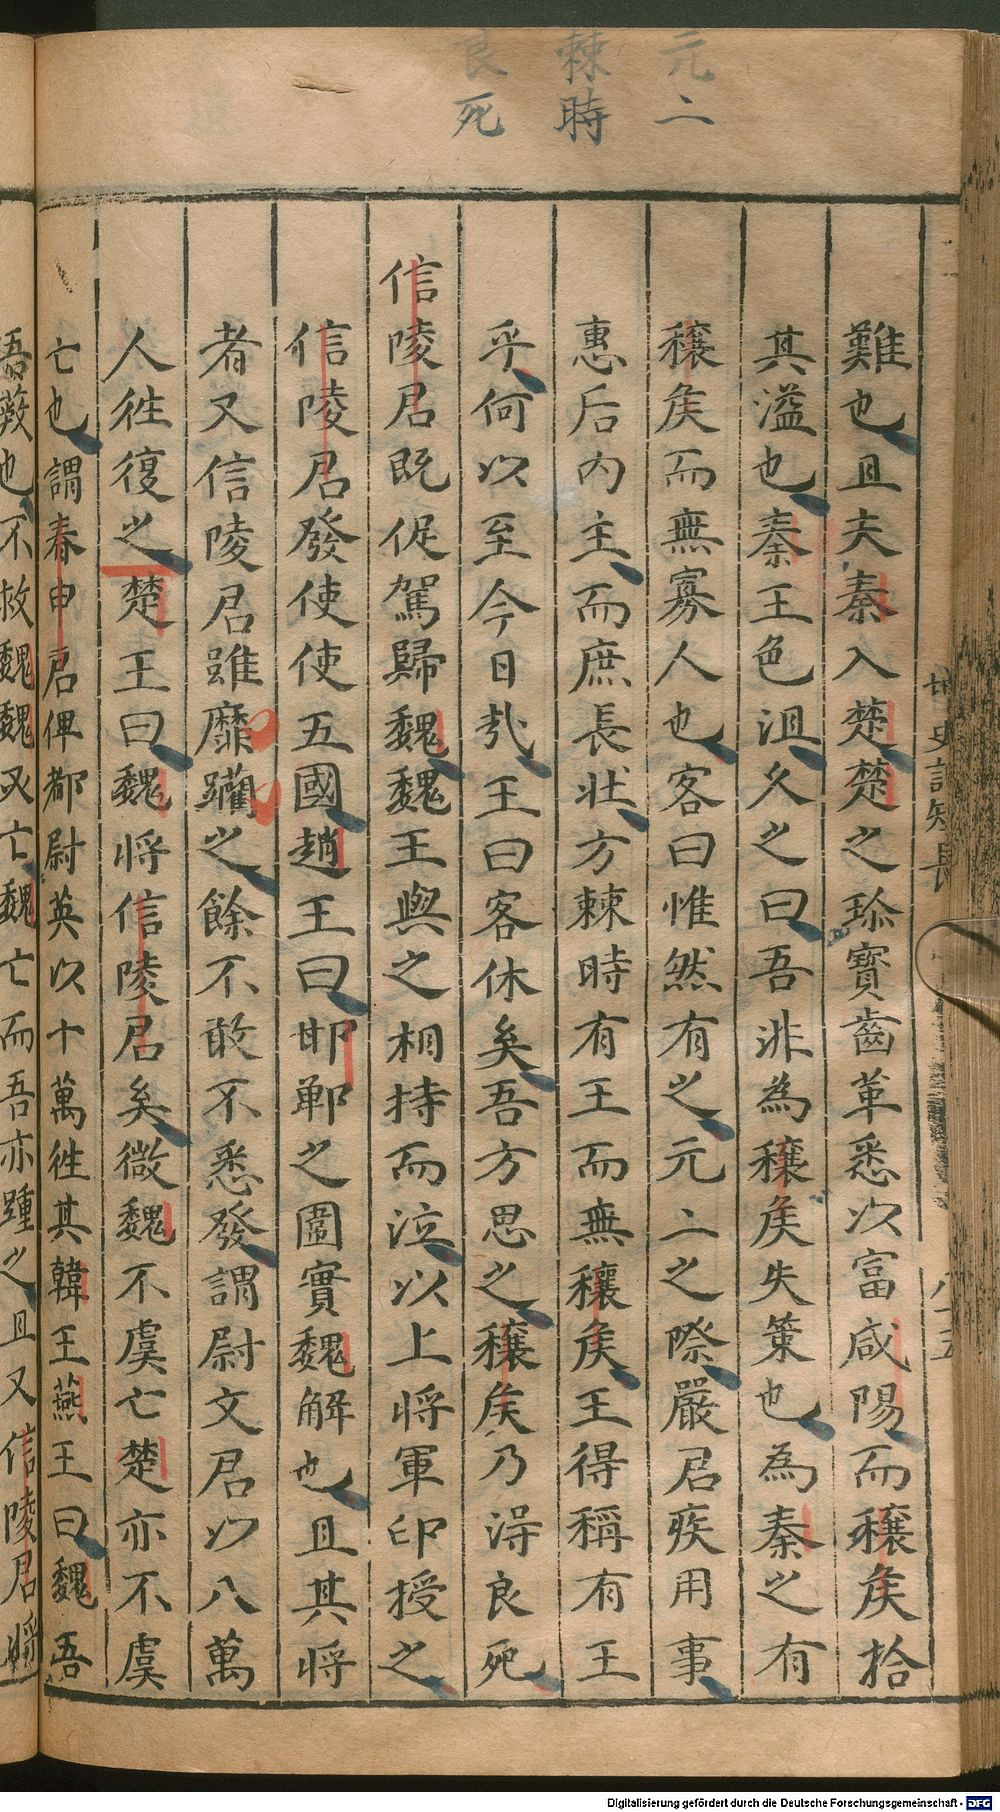 元二
棘時
良死
難也且夫秦入楚楚之珍寶齒革悉以富咸陽而穰矦拾
其溢也秦王色沮久之曰吾非為穰矦失策也為秦之有
穰矦而無寡人也客曰惟然有之元二之際嚴君疾用事
惠后內主而庶長壯方棘時有王而無穰矦王得稱有王
乎何以至今日哉王曰客休矣吾方思之穰矦乃得良死
信陵君既促駕歸魏魏王與之相持而泣以上將軍印授之
信陵君發使使五國趙王曰邯鄲之圍實魏解也且其將
者又信陵君雖靡躪之餘不敢不悉發謂尉文君以八萬
人徃復之楚王曰魏將信陵君矣微魏不虞亡楚亦不虞
亡也謂春申君俾都尉英以十萬徃其韓王燕王曰魏吾
吾蔽也不救魏魏又亡魏亡而吾亦踵之且又信陵君將
史記短長
八十五
Digitalisierung gefördert durch die Deutsche Forschungsgemeinschaft - DFG